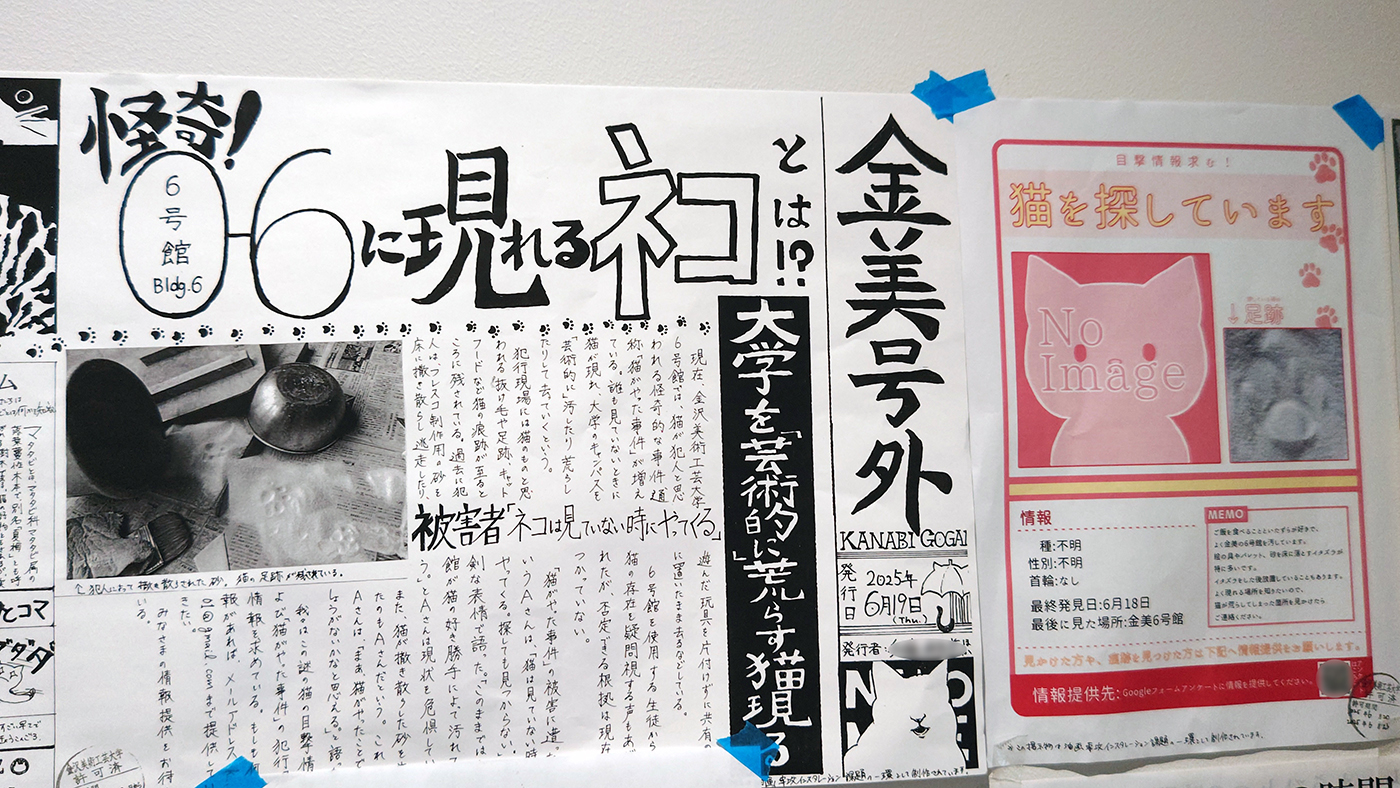 怪奇!
6号館
Bldg.6
6に現れるネコとは!?
金美号外
KANABI GOGAI
発行日
2025年
6月19日
(Thu.)
発行者:
大学を「芸術的に」荒らす猫現る
現在、金沢美術工芸大学
6号館では、猫が犯人と思
われる怪奇的な事件、通
称「猫がやった事件」が増え
ている。誰も見ていないときに
猫が現れ、大学のキャンバスを
「芸術的に」汚したり荒らし
たりして去っていくという。
犯行現場には猫のものと思
われる抜け毛や足跡、キャット
フードなど猫の痕跡が至ると
ころに残されている。過去に犯
人は、フレスコ制作用の砂を
床に撒き散らし逃走したり、
被害者「ネコは見ていない時にやってくる」
遊んだ玩具を片付けずに共有の
に置いたまま去るなどしている。
6号館を使用する生徒から
猫の存在を疑問視する声もあ
れたが、否定できる根拠は現在
つかっていない。
「猫がやった事件」の被害に遭っ
いうAさんは、「猫は見ていない時
やってくる。探しても見つからない。
剣な表情で語った。「このままでは
館が猫の好き勝手によって汚れて
う。」とAさんは現状を危惧して
また、猫が撒き散らした砂を
たのもAさんだという。これ
Aさんは、「まぁ猫がやったことで
しょうがないかなと思える。」と語
我々はこの謎の猫の目撃情
よび「猫がやった事件」の犯行
情報を求めている。もしも何
報があれば、メールアドレス
@gmail.comまで提供して
きたい。
みなさまの情報提供をお待
いる。
↑犯人によって撒き散らされた砂。猫の足跡が残されている。
目撃情報求む!
猫を探しています
No
Image
↓足跡
情報
種:不明
性別:不明
首輪:なし
最終発見日:6月18日
最後に見た場所:金美6号館
MEMO
ご飯を食べることといたずらが好きで、
よく金美の6号館を汚しています。
絵の具やパレット、砂を床に落とすイタズラが
特に多いです。
イタズラをした後放置していることもあります。
よく現れる場所を知りたいので、
猫が荒らしてしまった箇所を見かけたら
ご連絡ください。
見かけた方や、痕跡を見つけた方は下記へ情報提供をお願いします。
情報提供先:Googleフォームアンケートに情報を提供してください。
金沢美術工芸大学
許可済